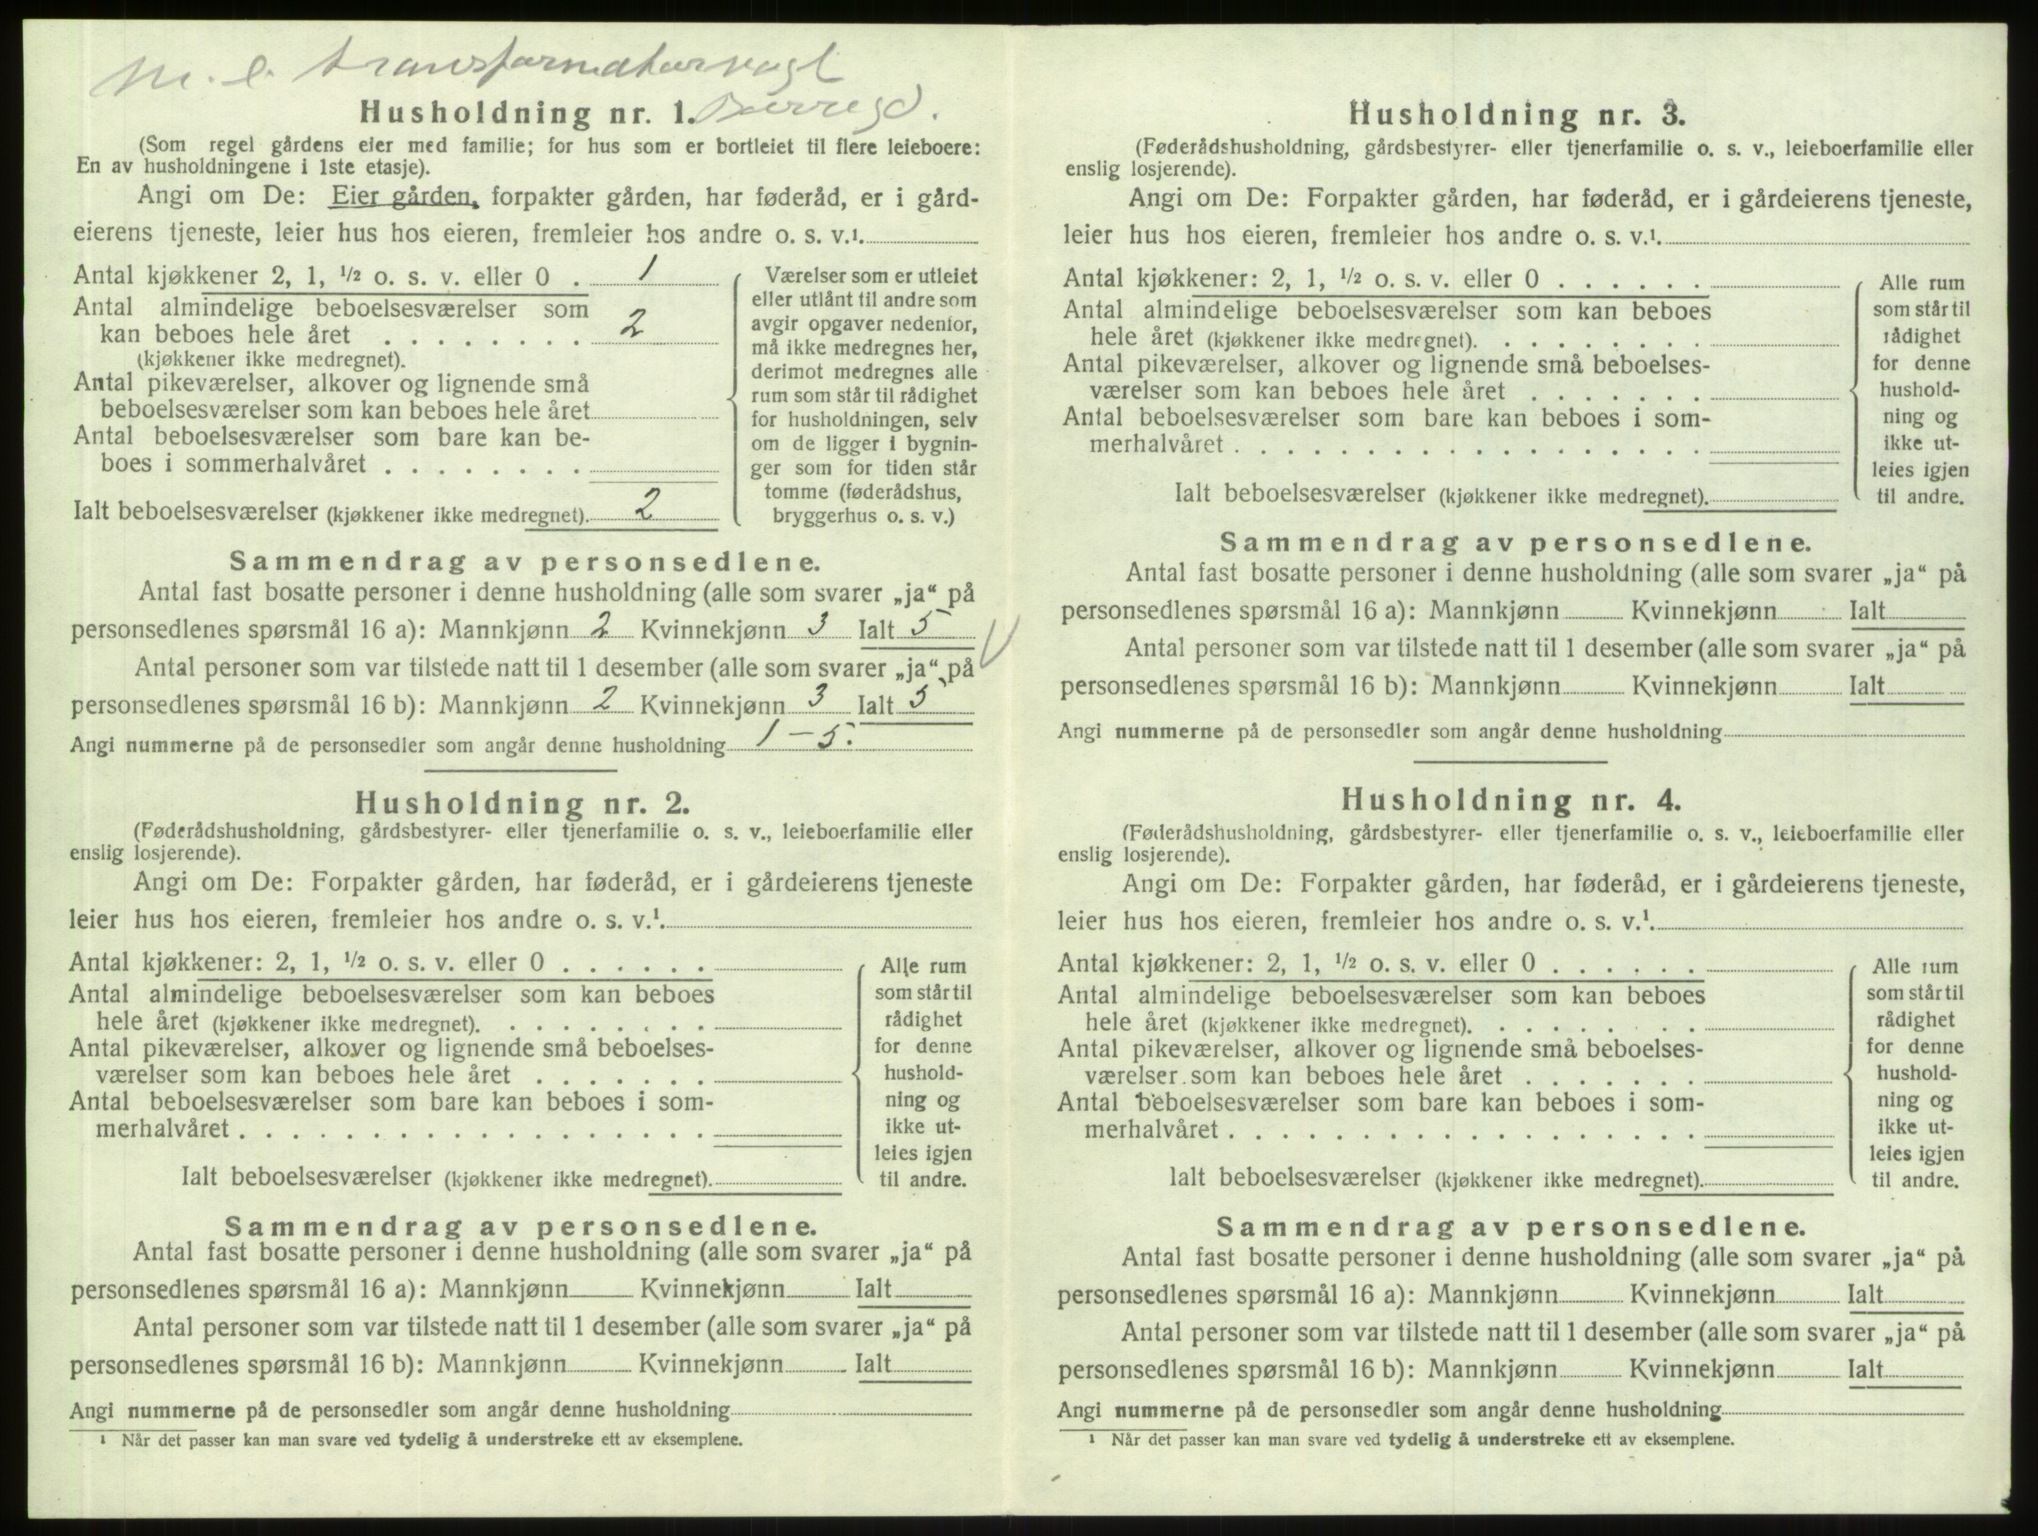 m. e. transformatorvagt
Husholdning nr. 1.
(Som regel gårdens eier med familie; for hus som er bortleiet til flere leieboere:
En av husholdningene i 1ste etasje).
Angi om De: Eier gården, forpakter gården, har føderåd, er i gård-
eierens tjeneste, leier hus hos eieren, fremleier hos andre o. s. v.¹.
Antal kjøkkener 2, 1, ½ o. s. v. eller 0 . 1
Antal almindelige beboelsesværelser som
kan beboes hele året . . . . . . . . 2
(kjøkkener ikke medregnet).
Antal pikeværelser, alkover og lignende små
beboelsesværelser som kan beboes hele året
Antal beboelsesværelser som bare kan be-
boes i sommerhalvåret . . . . . . . .
Ialt beboelsesværelser (kjøkkener ikke medregnet). 2
Værelser som er utleiet
eller utlånt til andre som
avgir opgaver nedenfor,
må ikke medregnes her,
derimot medregnes alle
rum som står til rådighet
for husholdningen, selv
om de ligger i bygnin-
ger som for tiden står
tomme (føderådshus,
bryggerhus o. s. v.)
Sammendrag av personsedlene.
Antal fast bosatte personer i denne husholdning (alle som svarer „ja“ på
personsedlenes spørsmål 16 a): Mannkjønn 2 Kvinnekjønn 3 Ialt 5
Antal personer som var tilstede natt til 1 desember (alle som svarer „ja“ på
personsedlenes spørsmål 16 b): Mannkjønn 2 Kvinnekjønn 3 Ialt 5
Angi nummerne på de personsedler som angår denne husholdning 1 – 5.
Husholdning nr. 2.
(Føderådshusholdning, gårdsbestyrer- eller tjenerfamilie o. s. v., leieboerfamilie eller
enslig losjerende).
Angi om De: Forpakter gården, har føderåd, er i gårdeierens tjeneste
leier hus hos eieren, fremleier hos andre o. s. v.¹.
Antal kjøkkener: 2, 1, ½ o. s. v. eller 0 . . . . . .
Antal almindelige beboelsesværelser som kan beboes
hele året (kjøkkener ikke medregnet). . . . . . . . .
Antal pikeværelser, alkover og lignende små beboelses-
værelser som kan beboes hele året . . . . . . .
Antal beboelsesværelser som bare kan beboes i som-
merhalvåret . . . . . . . . . . . . . . . . . .
Ialt beboelsesværelser (kjøkkener ikke medregnet).
Alle rum
som står til
rådighet
for denne
hushold-
ning og
ikke ut-
leies igjen
til andre.
Sammendrag av personsedlene.
Antal fast bosatte personer i denne husholdning (alle som svarer „ja“ på
personsedlenes spørsmål 16 a): Mannkjønn Kvinnekjønn Ialt
Antal personer som var tilstede natt til 1 desember (alle som svarer „ja“ på
personsedlenes spørsmål 16 b): Mannkjønn Kvinnekjønn Ialt
Angi nummerne på de personsedler som angår denne husholdning
¹ Når det passer kan man svare ved tydelig å understreke ett av eksemplene.
Husholdning nr. 3.
(Føderådshusholdning, gårdsbestyrer- eller tjenerfamilie o. s. v., leieboerfamilie eller
enslig losjerende).
Angi om De: Forpakter gården, har føderåd, er i gårdeierens tjeneste,
leier hus hos eieren, fremleier hos andre o. s. v.¹.
Antal kjøkkener: 2, 1, ½ o. s. v. eller 0 . . . . . .
Antal almindelige beboelsesværelser som kan beboes
hele året (kjøkkener ikke medregnet). . . . . . . . .
Antal pikeværelser, alkover og lignende små beboelses-
værelser som kan beboes hele året . . . . . . .
Antal beboelsesværelser som bare kan beboes i som-
merhalvåret . . . . . . . . . . . . . . . . . .
Ialt beboelsesværelser (kjøkkener ikke medregnet).
Alle rum
som står til
rådighet
for denne
hushold-
ning og
ikke ut-
leies igjen
til andre.
Sammendrag av personsedlene.
Antal fast bosatte personer i denne husholdning (alle som svarer „ja“ på
personsedlenes spørsmål 16 a): Mannkjønn Kvinnekjønn Ialt
Antal personer som var tilstede natt til 1 desember (alle som svarer „ja“ på
personsedlenes spørsmål 16 b): Mannkjønn Kvinnekjønn Ialt
Angi nummerne på de personsedler som angår denne husholdning
Husholdning nr. 4.
(Føderådshusholdning, gårdsbestyrer- eller tjenerfamilie o. s. v., leieboerfamilie eller
enslig losjerende).
Angi om De: Forpakter gården, har føderåd, er i gårdeierens tjeneste,
leier hus hos eieren, fremleier hos andre o. s. v.¹.
Antal kjøkkener: 2, 1, ½ o. s. v. eller 0 . . . . . .
Antal almindelige beboelsesværelser som kan beboes
hele året (kjøkkener ikke medregnet). . . . . . . . .
Antal pikeværelser, alkover og lignende små beboelses-
værelser som kan beboes hele året . . . . . . .
Antal beboelsesværelser som bare kan beboes i som-
merhalvåret . . . . . . . . . . . . . . . . . .
Ialt beboelsesværelser (kjøkkener ikke medregnet).
Alle rum
som står til
rådighet
for denne
hushold-
ning og
ikke ut-
leies igjen
til andre.
Sammendrag av personsedlene.
Antal fast bosatte personer i denne husholdning (alle som svarer „ja“ på
personsedlenes spørsmål 16 a): Mannkjønn Kvinnekjønn Ialt
Antal personer som var tilstede natt til 1 desember (alle som svarer „ja“ på
personsedlenes spørsmål 16 b): Mannkjønn Kvinnekjønn Ialt
Angi nummerne på de personsedler som angår denne husholdning
¹ Når det passer kan man svare ved tydelig å understreke ett av eksemplene.